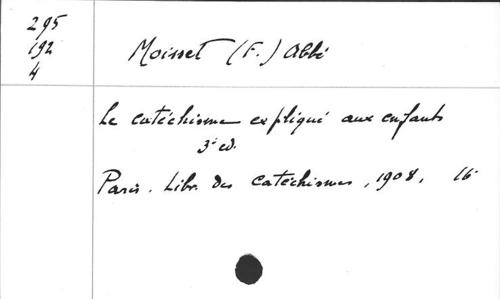 295
192
4
Moisset (F.) Abbé
Le catéchisme expliqué aux enfants
3e ed.
Paris. Libr. des Catéchismes, 1908, 16